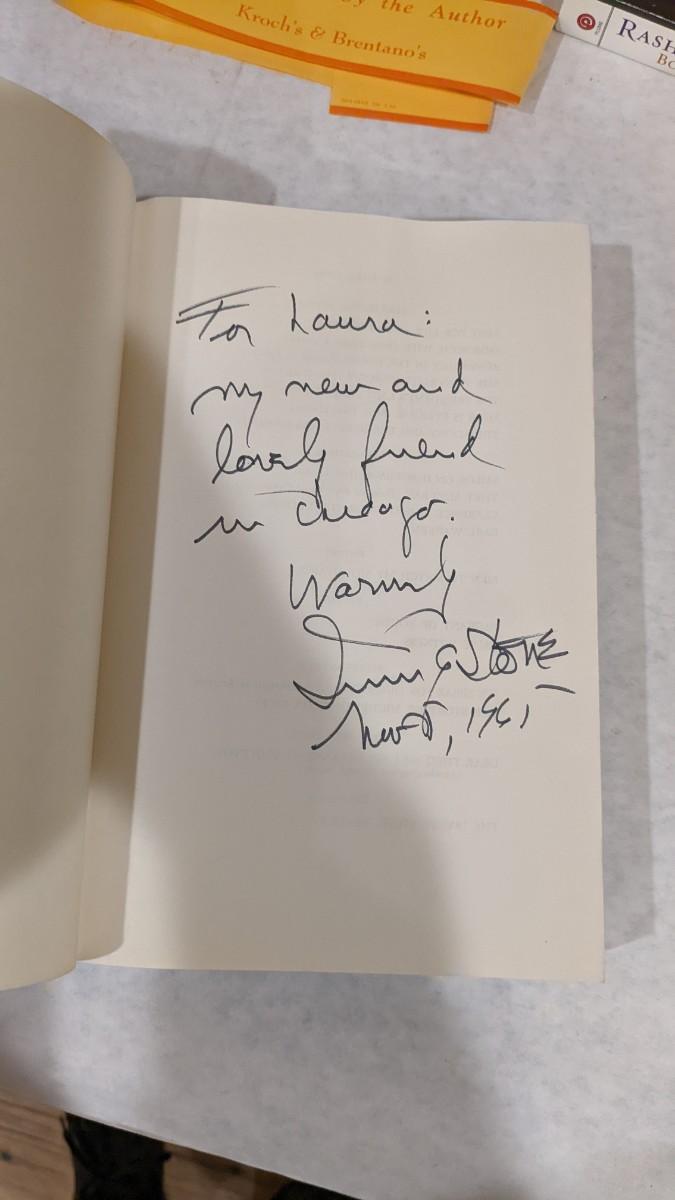 by the Author
Kroch's & Brentano's
RASH
BO
For Laura:
my new and
lovely friend
in Chicago.
Warmly
Irving Stone
Nov 5, 1961